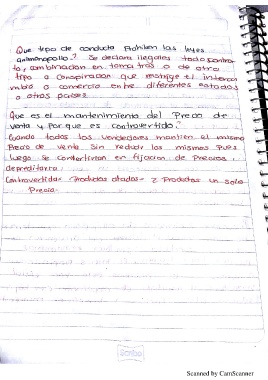 Que tipo de conducta Prohiben las leyes
antimonopolio? Se declara ilegales todo contra-
to, combinacion en forma tras o de otro
tipo o conspiracion que restrige el interca
mbio o comercio entre diferentes estados
o otros paises.
Que es el mantenimiento del Precio de
venta y por que es controvertido?
Cuando todos los vendedores mantien el mismo
Precio de venta Sin reducir los mismos Pues
luego se convertirian en fijacion de Precios.
depreditarra.
Controvertidas: Productos atados- 2 Productos un solo
Precio.
Scribe
Scanned by CamScanner